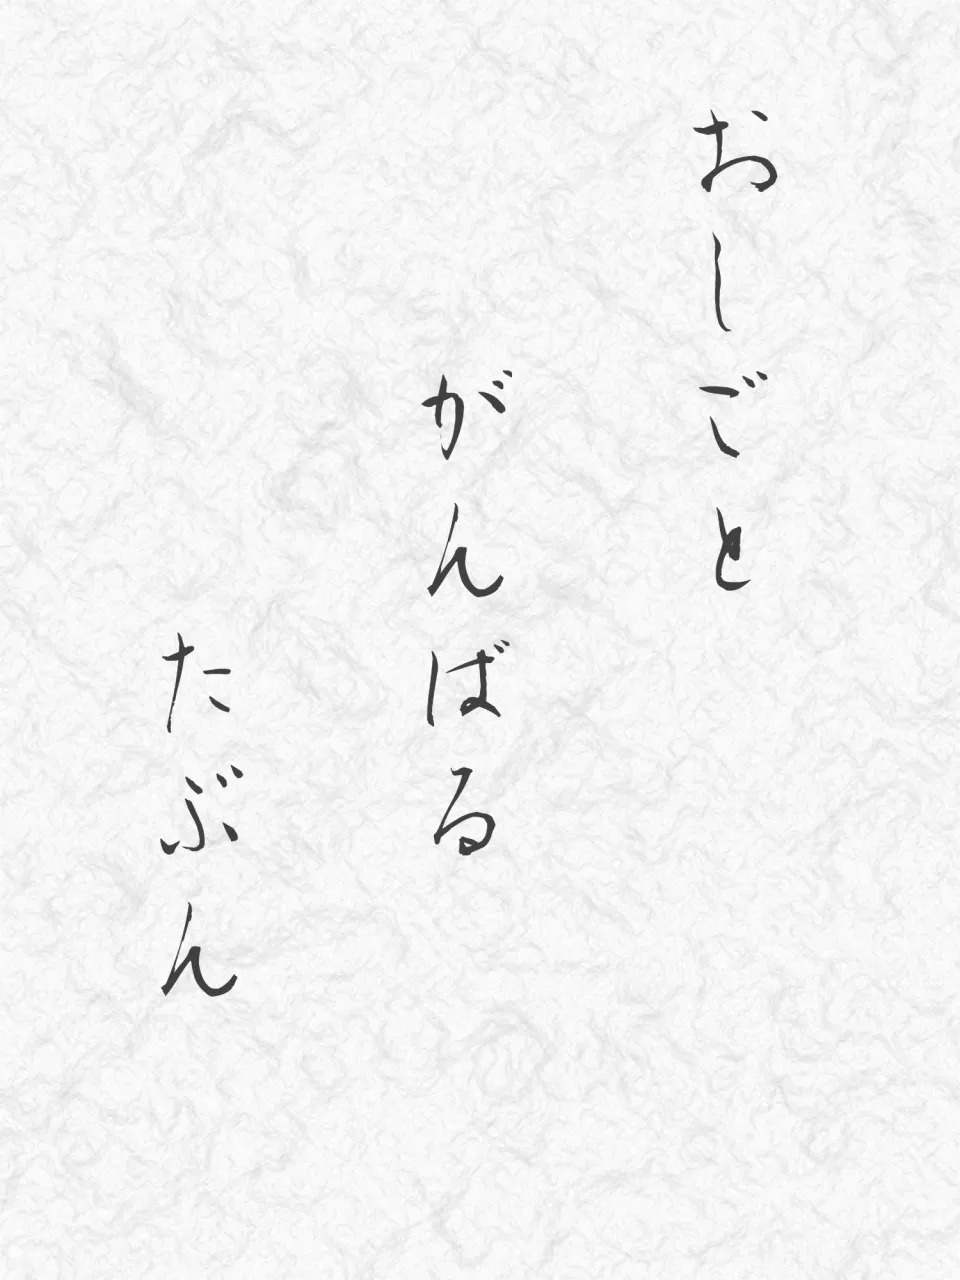 おしごと
がんばる
たぶん